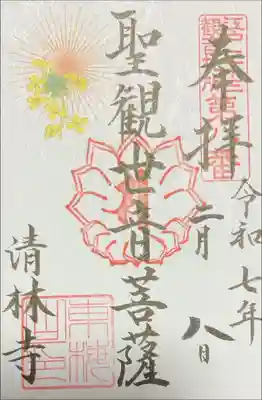 奉拝
令和七年
二月
八日
聖観世音菩薩
清林寺